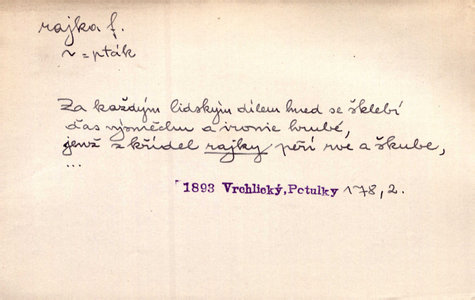 rajka f.
~ = pták
Za každým lidským dílem hned se šklebí
ďas výsměchu a ironie hrubé,
jenž z křídel rajky peří rve a škube,
...
1893 Vrchlický, Potulky 178, 2.